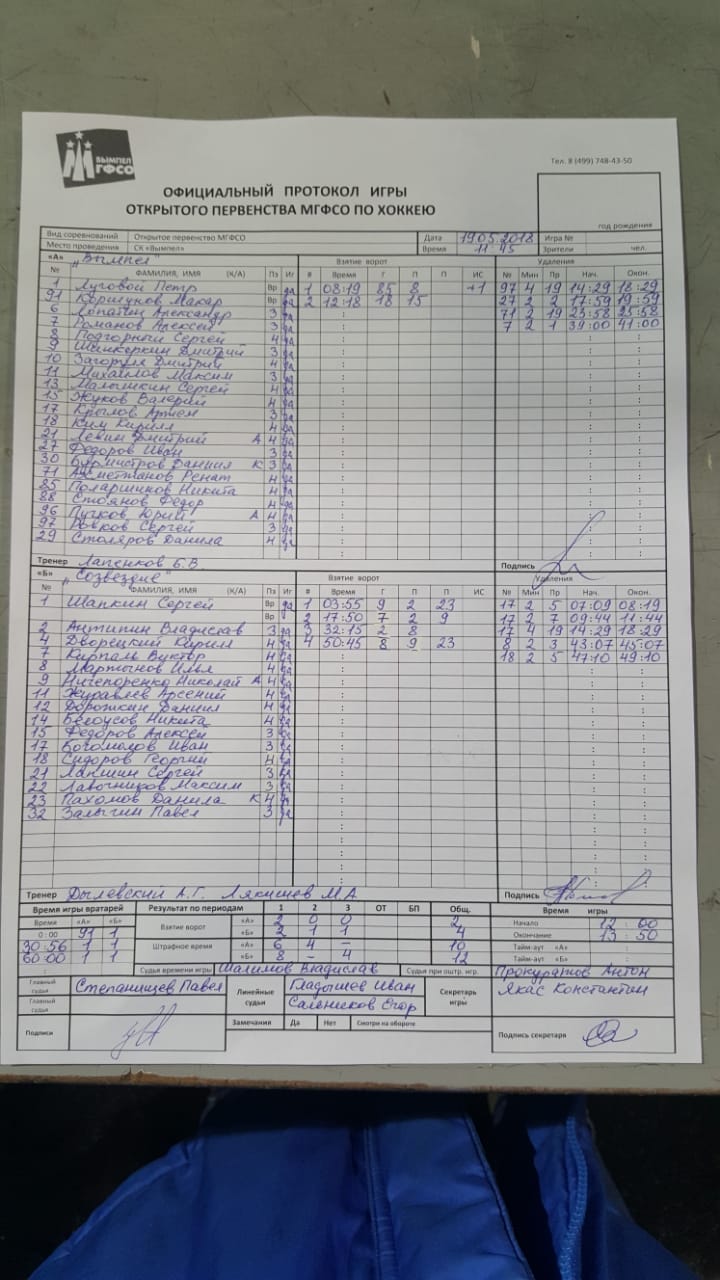 ВЫМПЕЛ
МГФСО
Тел. 8 (499) 748-43-50
ОФИЦИАЛЬНЫЙ ПРОТОКОЛ ИГРЫ
ОТКРЫТОГО ПЕРВЕНСТВА МГФСО ПО ХОККЕЮ
год рождения
Вид соревнований Открытое первенство МГФСО Дата 19.05.2018 Игра №
Место проведения СК «Вымпел» Время 11 45 Зрители чел.
«А» "Вымпел" Взятие ворот Удаления
№ ФАМИЛИЯ, ИМЯ (К/А) Пз Иг # Время Г П П ИС № Мин Пр Нач. Окон.
1 Луговой Петр Вр да 1 08:19 85 8 +1 97 4 19 14:29 18:29
91 Коршунов Макар Вр да 2 12:18 18 15 27 2 2 17:59 19:59
6 Лопатин Александр 3 да 71 2 19 23:58 25:58
7 Романов Алексей 3 да 7 2 1 39:00 41:00
8 Подгорный Сергей 4 да
9 Шинкеркин Дмитрий 3 да
10 Загоруля Дмитрий 4 да
11 Михайлов Максим 3 да
13 Малышкин Сергей 4 да
15 Жуков Валерий 4 да
17 Крылов Артем 3 да
18 Ким Кирилл 4 да
21 Левин Дмитрий А 4 да
27 Федоров Иван 3 да
30 Бурмистров Даниил К 3 да
71 Ахметжанов Ренат 4 да
85 Поларшинов Никита 4 да
88 Стоянов Федор 4 да
96 Пучков Юрий А 4 да
97 Ровков Сергей 3 да
29 Столяров Данила 4 да
Тренер Лапенков Б.В. Подпись
«Б» "Созвездие" Взятие ворот Удаления
№ ФАМИЛИЯ, ИМЯ (К/А) Пз Иг # Время Г П П ИС № Мин Пр Нач. Окон.
1 Шапкин Сергей Вр да 1 03:55 9 2 23 17 2 5 07:09 08:19
Вр 2 17:50 7 2 9 17 2 7 09:44 11:44
2 Антипин Владислав 3 да 3 32:15 2 8 17 4 19 14:29 18:29
4 Дворецкий Кирилл 4 да 4 50:45 8 9 23 8 2 3 43:07 45:07
7 Кирпаль Виктор 4 да 18 2 5 47:10 49:10
8 Мартынов Илья 4 да
9 Ничепоренко Николай А 4 да
11 Журавлев Арсений 4 да
12 Дорожкин Даниил 4 да
14 Белоусов Никита 4 да
15 Федоров Алексей 3 да
17 Богомолов Иван 3 да
18 Сидоров Георгий 4 да
21 Лапшин Сергей 3 да
22 Лавочников Максим 3 да
23 Пахомов Данила К 4 да
32 Залыгин Павел 3 да
Тренер Дылевский А.Г. Лякишев М.А. Подпись
Время игры вратарей Результат по периодам 1 2 3 ОТ БП Общ. Время игры
Время «А» «Б» Взятие ворот «А» 2 0 0 2 Начало 12 00
0:00 91 1 «Б» 2 1 1 4 Окончание 13 50
30:56 1 1 Штрафное время «А» 6 4 – 10 Тайм-аут «А»
60:00 1 1 «Б» 8 – 4 12 Тайм-аут «Б»
Судья времени игры Шалимов Владислав Судья при оштр. игр. Прокуратов Антон
Главный судья Степанищев Павел Линейные судьи Гладышев Иван Секретарь игры Якас Константин
Главный судья Сальников Егор
Подписи Замечания Да Нет Смотри на обороте Подпись секретаря